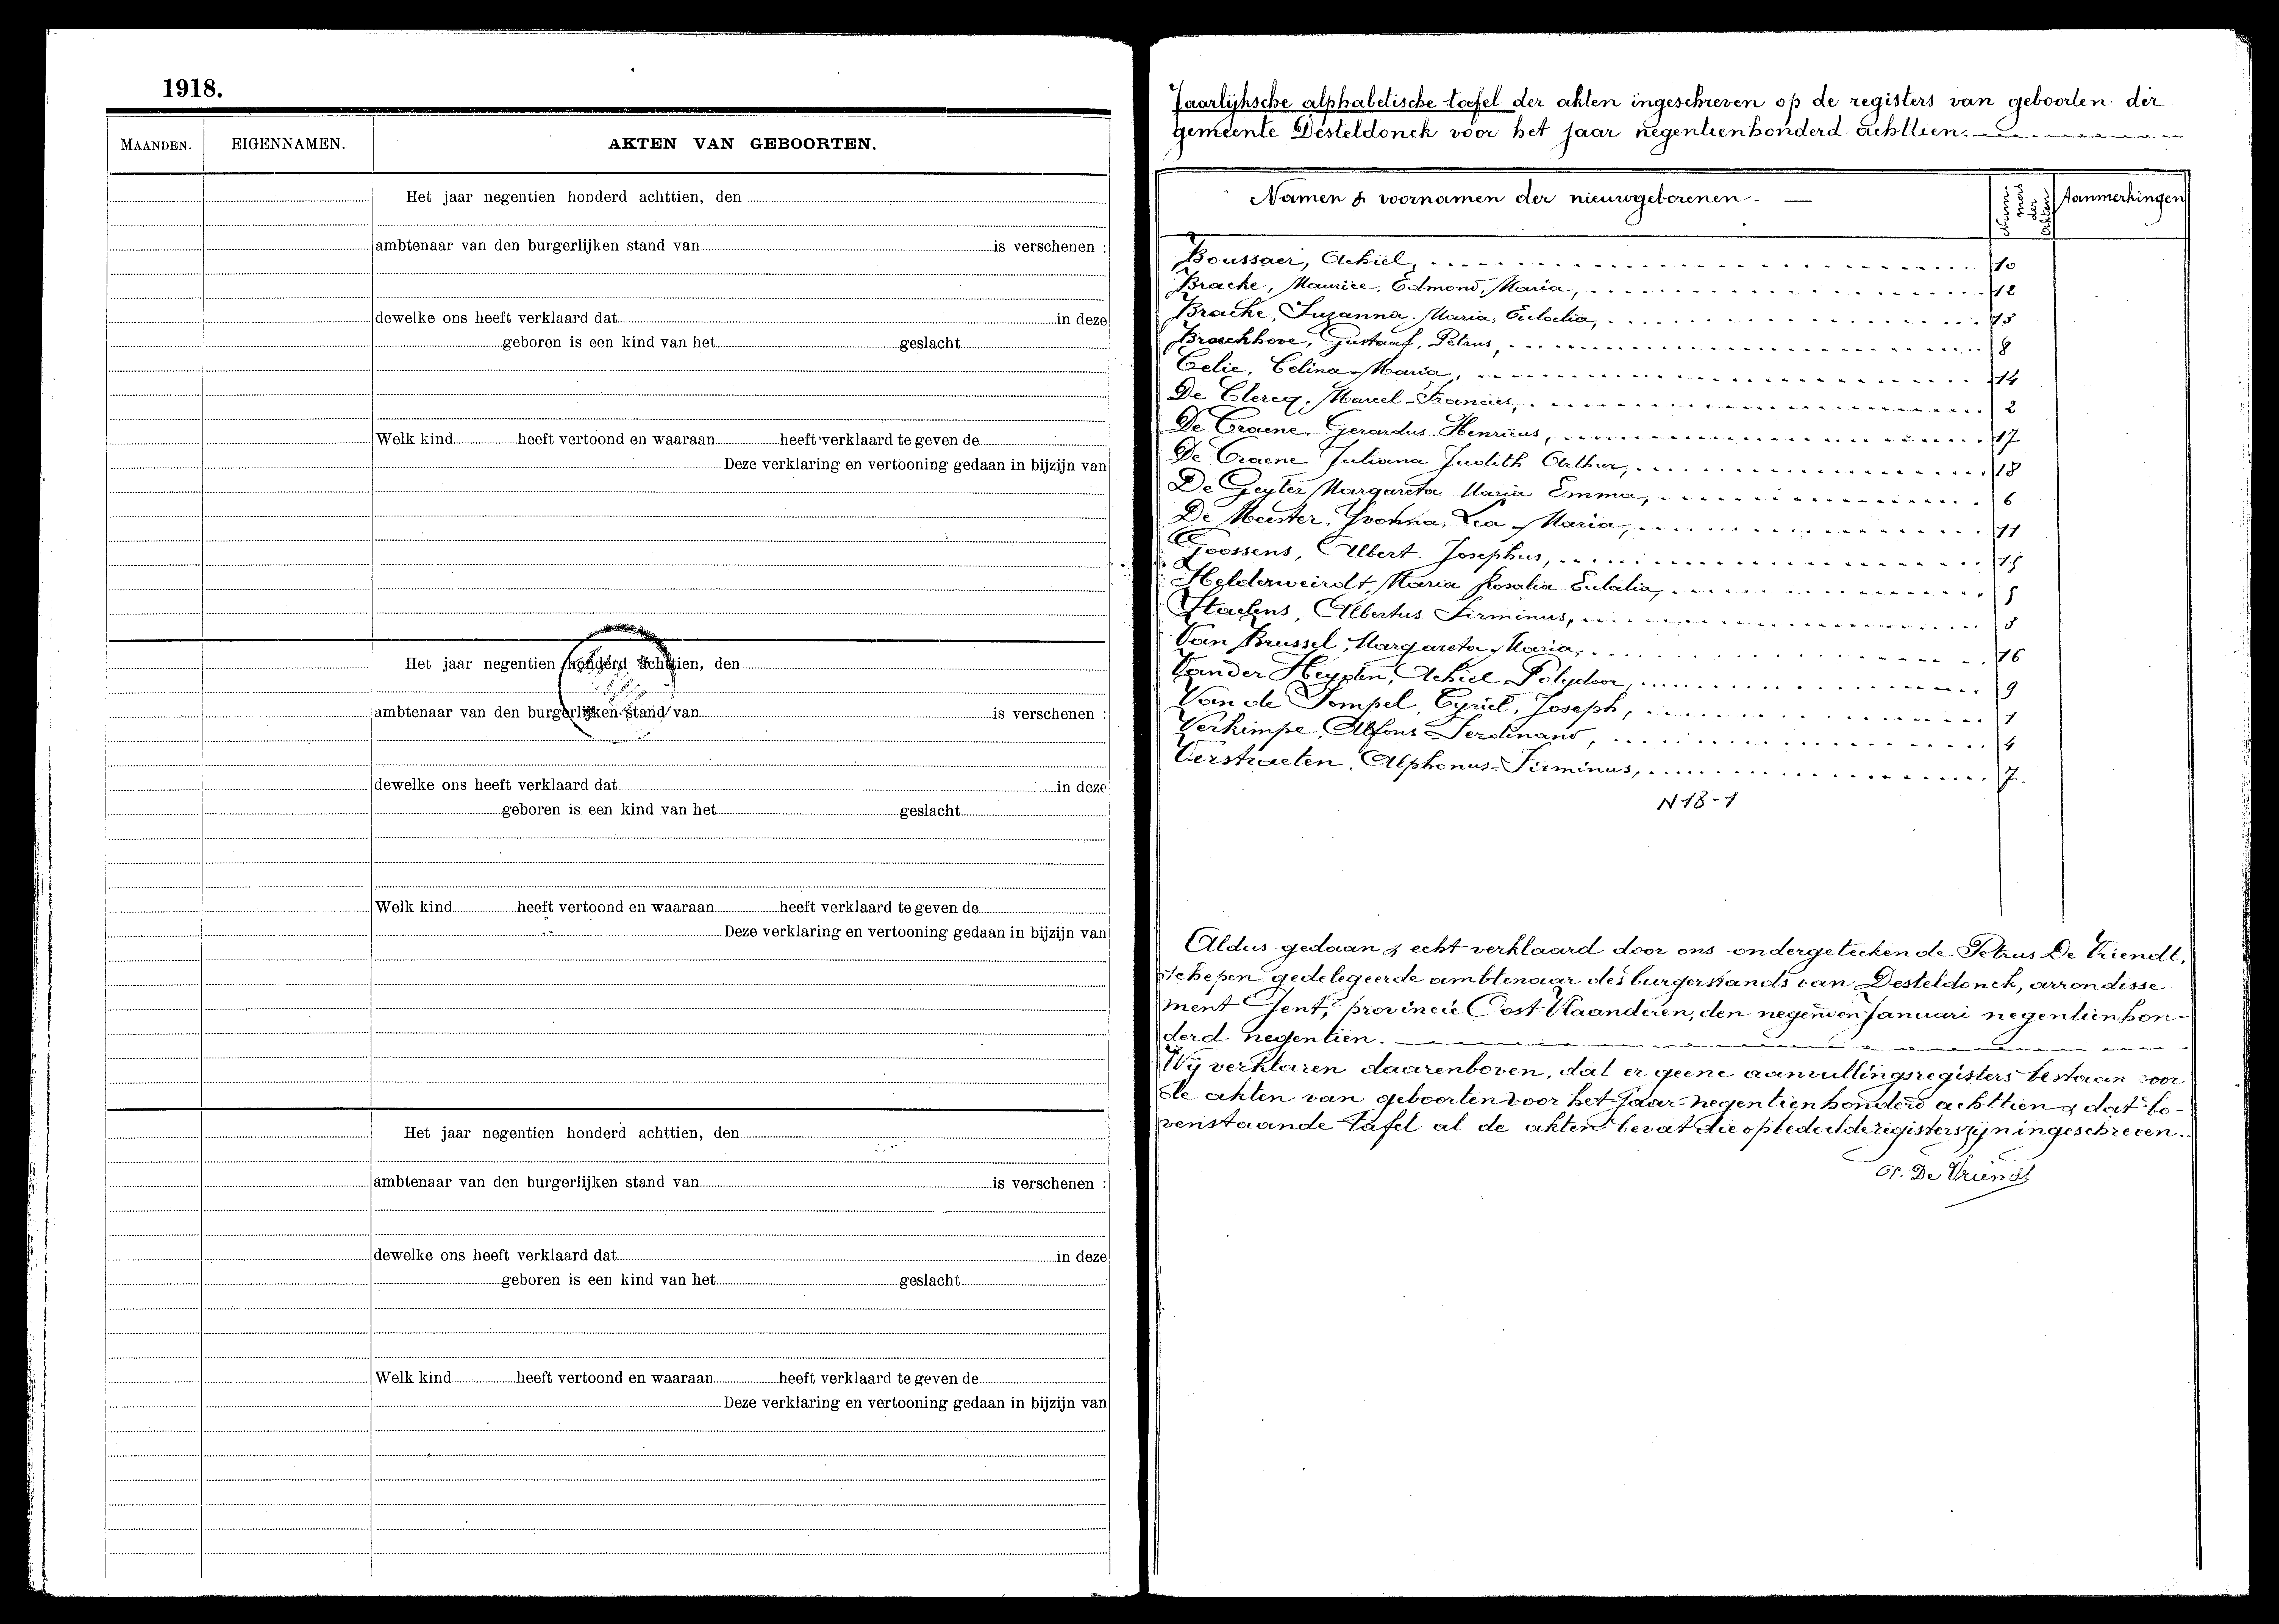 1918.
MAANDEN. EIGENNAMEN. AKTEN VAN GEBOORTEN.
Het jaar negentien honderd achttien, den
ambtenaar van den burgerlijken stand van is verschenen :
dewelke ons heeft verklaard dat in deze
geboren is een kind van het geslacht
Welk kind heeft vertoond en waaraan heeft verklaard te geven de
Deze verklaring en vertooning gedaan in bijzijn van
Het jaar negentien honderd achttien, den
ambtenaar van den burgerlijken stand van is verschenen :
dewelke ons heeft verklaard dat in deze
geboren is een kind van het geslacht
Welk kind heeft vertoond en waaraan heeft verklaard te geven de
Deze verklaring en vertooning gedaan in bijzijn van
Het jaar negentien honderd achttien, den
ambtenaar van den burgerlijken stand van is verschenen :
dewelke ons heeft verklaard dat in deze
geboren is een kind van het geslacht
Welk kind heeft vertoond en waaraan heeft verklaard te geven de
Deze verklaring en vertooning gedaan in bijzijn van
Jaarlijksche alphabetische tafel der akten ingeschreven op de registers van geboorten der
gemeente Desteldonck voor het jaar negentienhonderd achttien.
Namen & voornamen der nieuwgeborenen. Aanmerkingen
Boussaer, Achiel, 10
Bracke, Maurice, Edmond, Maria, 12
Bracke, Suzanna, Maria, Eulalia, 13
Braeckhove, Gustaaf, Petrus, 8
Celie, Celina Maria, 14
De Clercq, Marcel-Francies, 2
De Craene, Gerardus Henricus, 17
De Craene Juliana Judith Arthur, 18
De Geyter Margareta Maria Emma, 6
De Meester, Yvonna, Lea Maria, 11
Goossens, Albert Josephus, 15
Helderweirdt, Maria Rosalia Eulalia, 5
Staelens, Albertus Firminus, 3
Van Brussel, Margareta Maria, 16
Vander Heyden, Achiel Polydoor, 9
Van de Tompel, Cyriel, Joseph, 1
Verkimpe, Alfons Ferdinand, 4
Verstraeten, Alphonus-Firminus, 7.
N 18-1
Aldus gedaan & echt verklaard door ons ondergeteekende Petrus De Vriendt,
schepen gedelegeerde ambtenaar des burgerstands van Desteldonck, arrondisse
ment Gent, provincie Oost Vlaanderen, den negenden Januari negentienhon-
derd negentien.
Wij verklaren daarenboven, dat er geene aanvullingsregisters bestaan voor
de akten van geboorten voor het jaar negentienhonderd achttien & dat bo-
venstaande tafel al de akten bevat die op bedoelde registers zijn ingeschreven.
P. De Vriendt